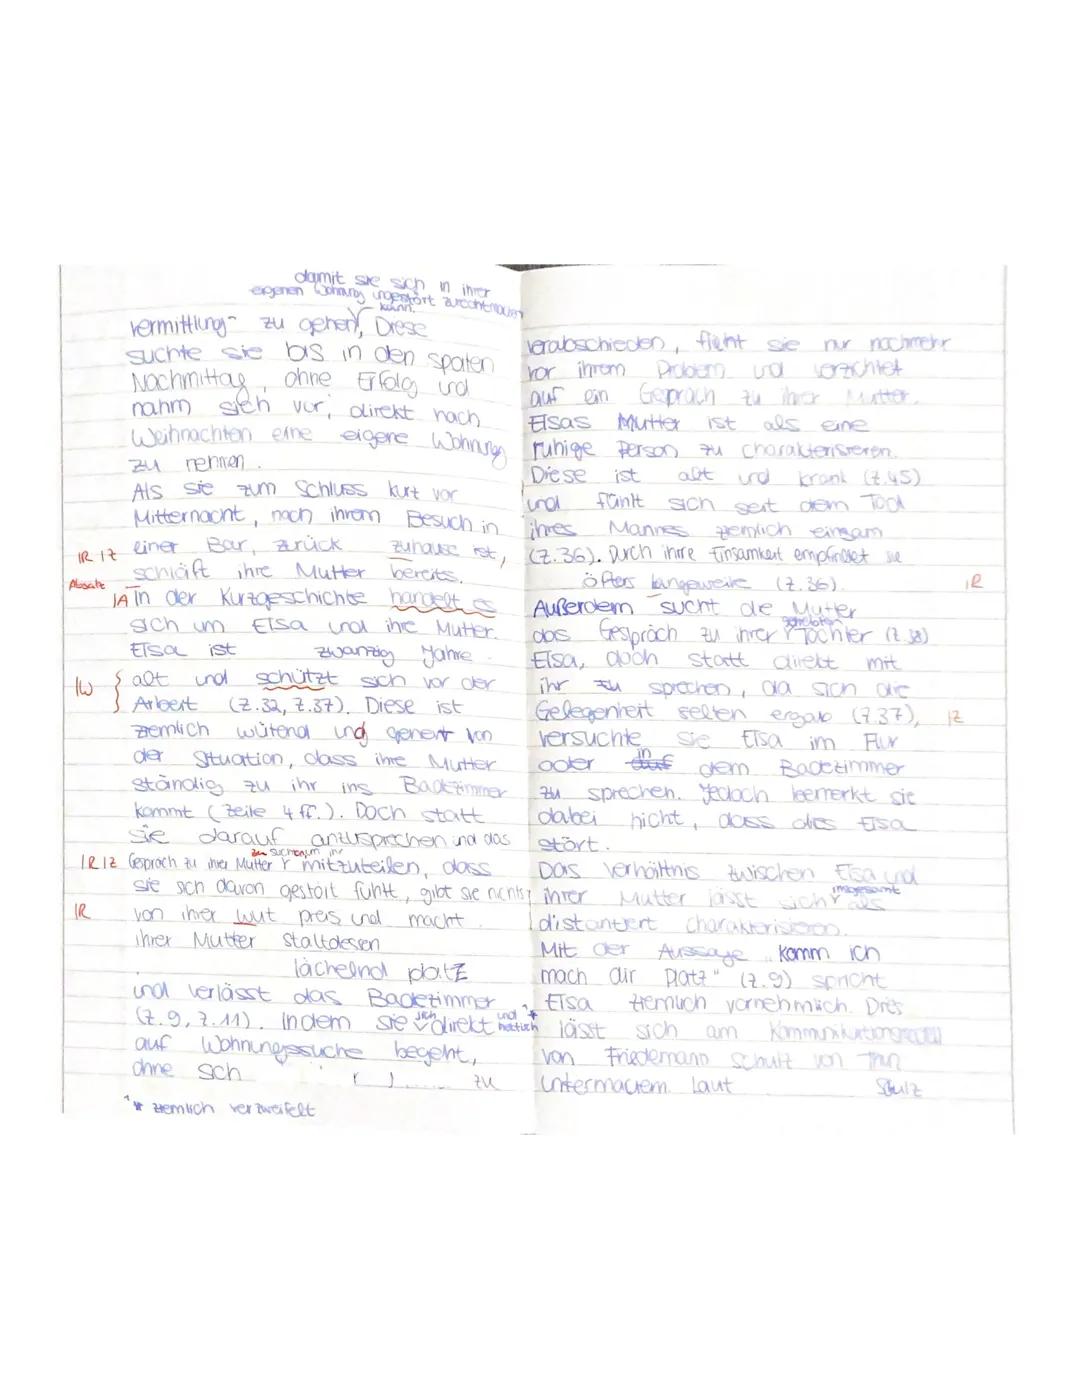 damit sie sich in ihrer
eigenen Wohnung ungestört zurechtmachen
kann.
vermittlung" zu gehen, Diese
suchte sie bis in den späten
Nachmittag, ohne Erfolg und
nahm sich vor, direkt nach
Weihnachten eine eigene Wohnung
zu nehmen.
Als sie zum Schluss kurz vor
Mitternacht, nach ihrem Besuch in
1R 1Z einer Bar, zurück zuhause ist,
schläft ihre Mutter bereits.
Absatz
1A In der Kurzgeschichte handelt es
sich um Elsa und ihre Mutter.
Elsa ist zwanzig Jahre
1W alt und schützt sich vor der
Arbeit (Z.32, Z.37). Diese ist
ziemlich wütend und genervt von
der Situation, dass ihre Mutter
ständig zu ihr ins Badezimmer
kommt (Zeile 4 ff.). Doch statt
sie darauf anzusprechen und das
zu suchen um ihr
1R 1Z Gespräch zu ihrer Mutter mitzuteilen, dass
sie sich davon gestört fühlt, gibt sie nichts
1R von ihrer wut preis und macht
ihrer Mutter stattdesen
lächelnd platz
und verlässt das Badezimmer
(Z.9, Z.11). Indem sie sich direkt und hektisch *
auf Wohnungssuche begeht,
ohne sich zu
* ziemlich verzweifelt
verabschieden, flieht sie nur nochmehr
vor ihrem Problem und verzichtet
auf ein Gespräch zu ihrer Mutter.
Elsas Mutter ist als eine
ruhige Person zu charakterisieren.
Diese ist alt und krank (Z.45)
und fühlt sich seit dem Tod
ihres Mannes ziemlich einsam
(Z.36). Durch ihre Einsamkeit empfindet sie
öfters langeweile (Z.36). 1R
Außerdem sucht die Mutter
das Gespräch zu ihrer geliebten Tochter (Z.38)
Elsa, doch statt direkt mit
ihr zu sprechen, da sich die
Gelegenheit selten ergab (Z.37), 1Z
versuchte sie Elsa im Flur
oder in dem Badezimmer
zu sprechen. Jedoch bemerkt sie
dabei nicht, dass dies Elsa
stört.
Das Verhältnis zwischen Elsa und
ihrer Mutter lässt sich insgesamt als
distanziert charakterisieren.
Mit der Aussage „Komm ich
mach dir Platz" (Z.9) spricht
Elsa ziemlich vornehmlich. Dies
lässt sich am Kommunikationsmodell
von Friedemann Schulz von Thun
untermauern. Laut Schulz